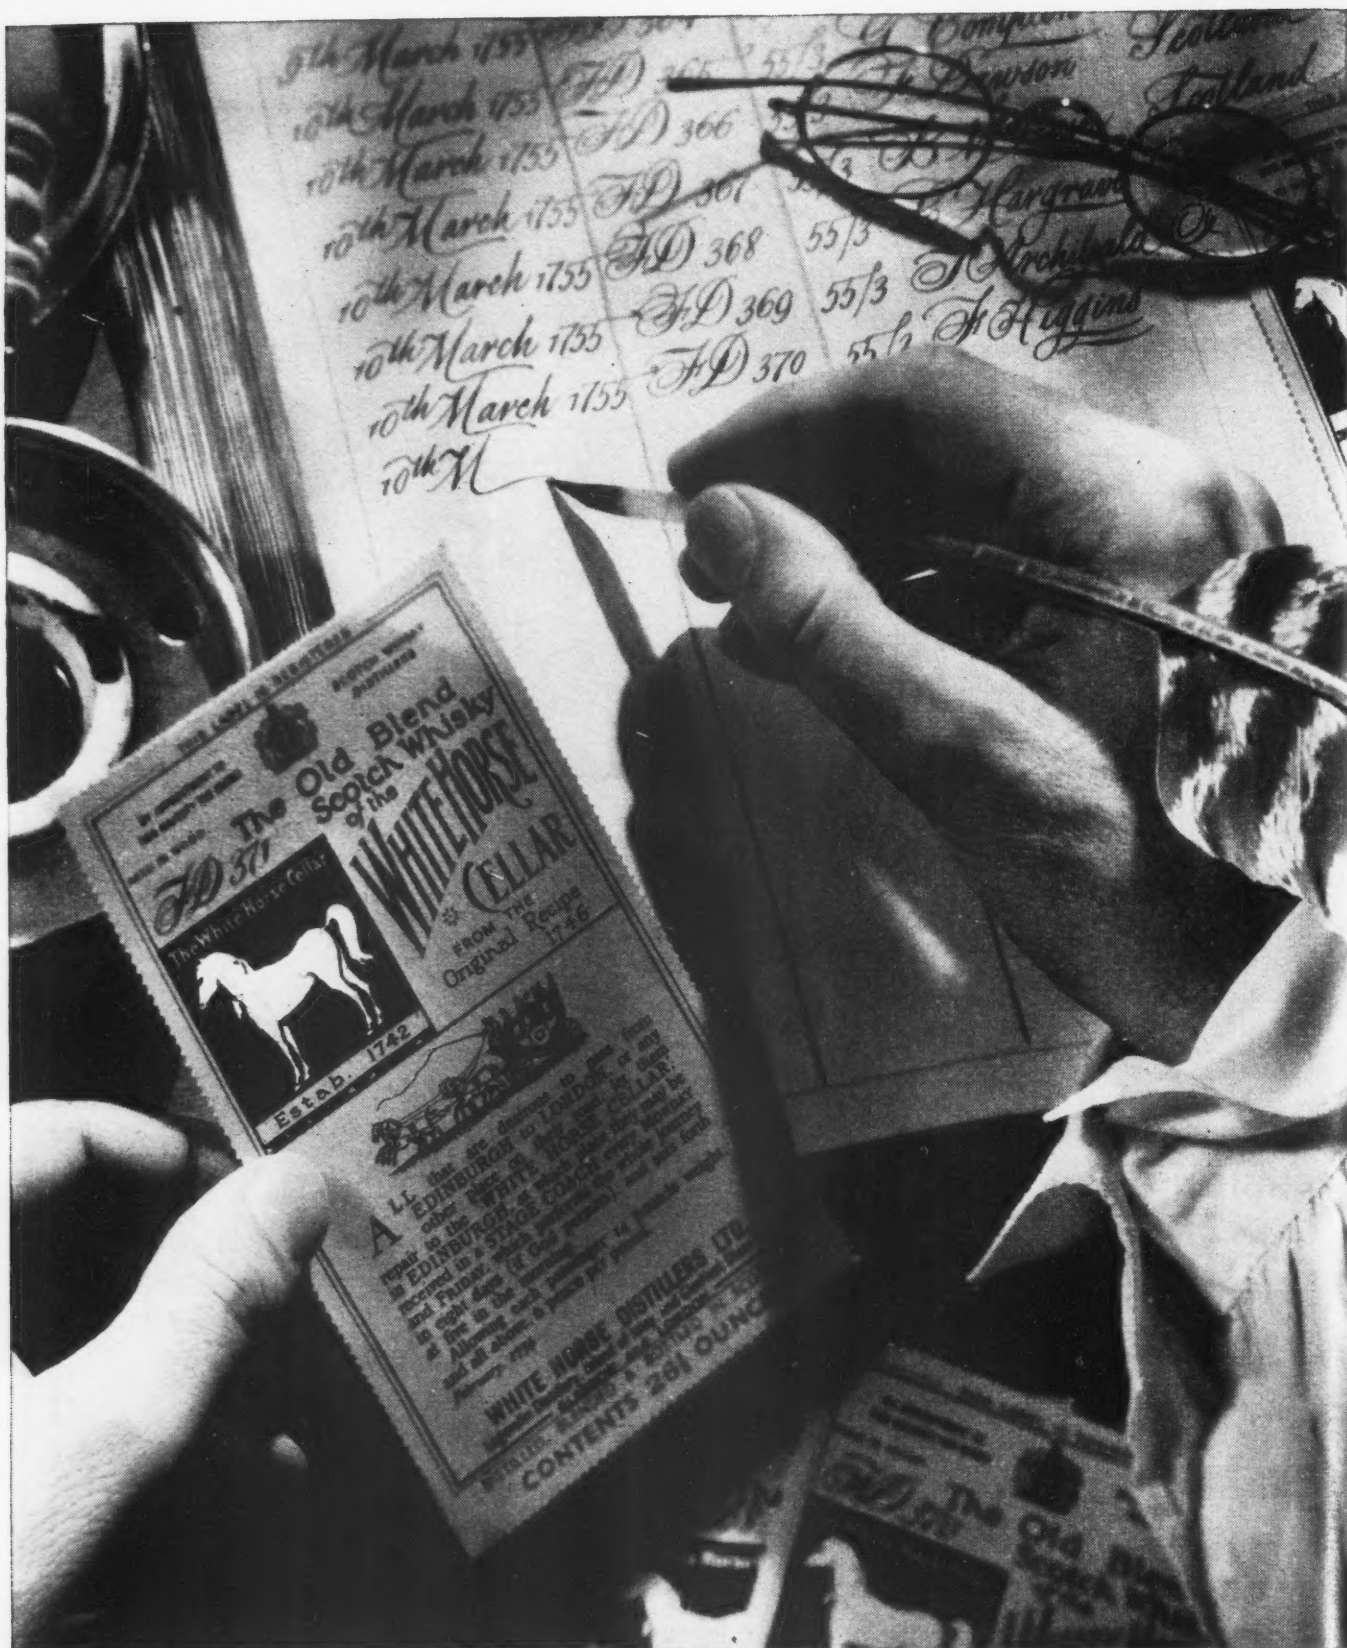 9th March 1755 364 G Compton Scotland
10th March 1755 FD 365 55/3 F Dawson Scotland
10th March 1755 FD 366 55/3 B
10th March 1755 FD 367 Hargrave
10th March 1755 FD 368 55/3 T Archibald
10th March 1755 FD 369 55/3 F Higgins
10th March 1755 FD 370 55/3
10th M
THIS LABEL IS REGISTERED
BY APPOINTMENT TO
SCOTCH WHISKY
DISTILLERS
The Old Blend
Scotch Whisky
of the
WHITE HORSE
CELLAR
FROM THE
Original Recipe
1746
FD 371
The White Horse Cellar
Estab. 1742
ALL that are desirous to pass from
EDINBURGH to LONDON, or any
other place on their road, let them
repair to the WHITE HORSE CELLAR
in EDINBURGH, at which place they may be
received in a STAGE COACH every MONDAY
and FRIDAY, which performs the whole journey
in eight days (if God permits), and sets forth
at five in the morning.
Allowing each passenger 14 pounds weight,
and all above, 6 pence per pound.
February, 1754
WHITE HORSE DISTILLERS LTD.
CONTENTS 26⅔ OUNC
The Old Blen
Scotch